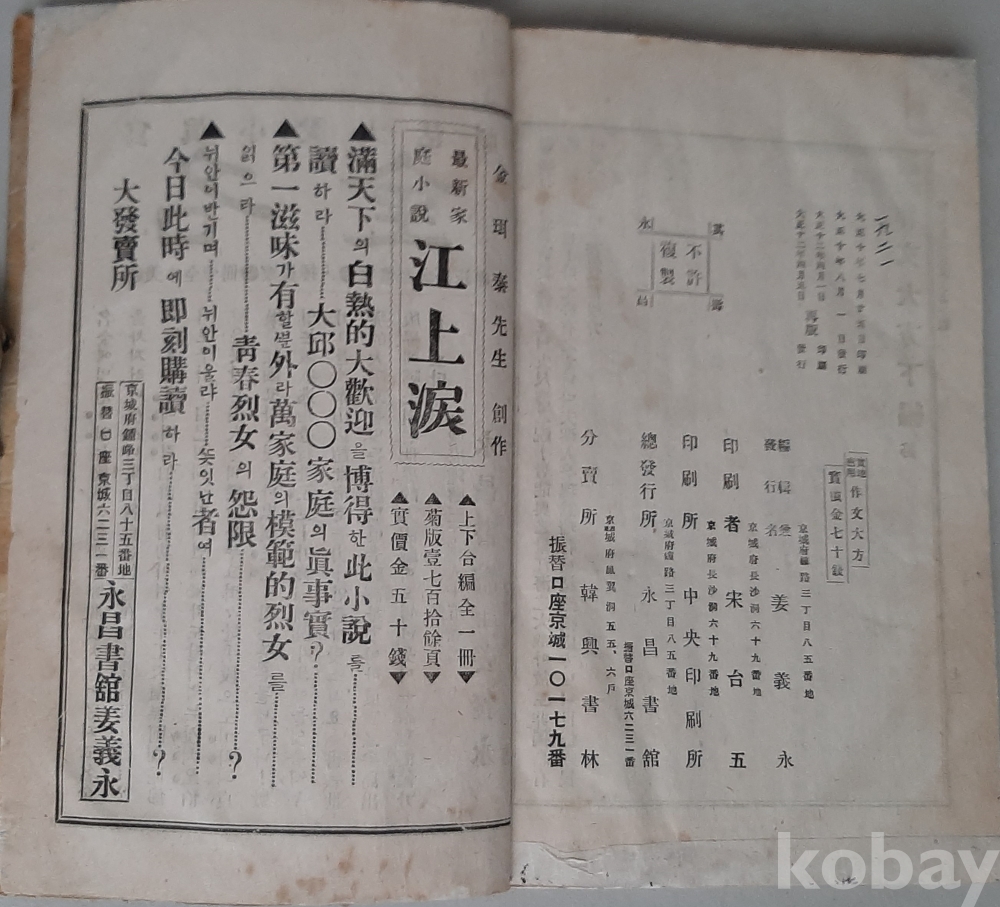 一九二一
大正十年七月廿五日印刷
大正十年八月一日發行
大正十二年四月一日再版印刷
大正十二年四月五日發行
不許
複製
實地
應用
作文大方
定價金七十錢
京城府鍾路三丁目八五番地
編輯兼
發行者 姜義永
京城府長沙洞六十九番地
印刷者 宋台五
京城府長沙洞六十九番地
印刷所 中央印刷所
京城府鍾路三丁目八五番地
總發行所 永昌書舘
振替口座京城六二三一番
京城府鳳翼洞五五、六戶
分賣所 韓興書林
振替口座京城一〇一七九番
先生 創作
最新家
庭小說
江上淚
▲上下合編全一冊▼
▲菊版壹七百拾餘頁▼
▲實價金五十錢▼
▲滿天下의白熱的大歡迎을博得한此小說를
讀하라 大邱〇〇〇家庭의眞事實?
▲第一滋味가有할뿐外라萬家庭의模範的烈女를
읽으라 靑春烈女의怨限 ?
▲뉘안이반기며 뉘안이울랴 뜻잇난者여
今日此時에即刻購讀하라 ?
大發賣所
京城府鍾路三丁目八十五番地
振替口座京城六二三一番
永昌書舘姜義永
kobay